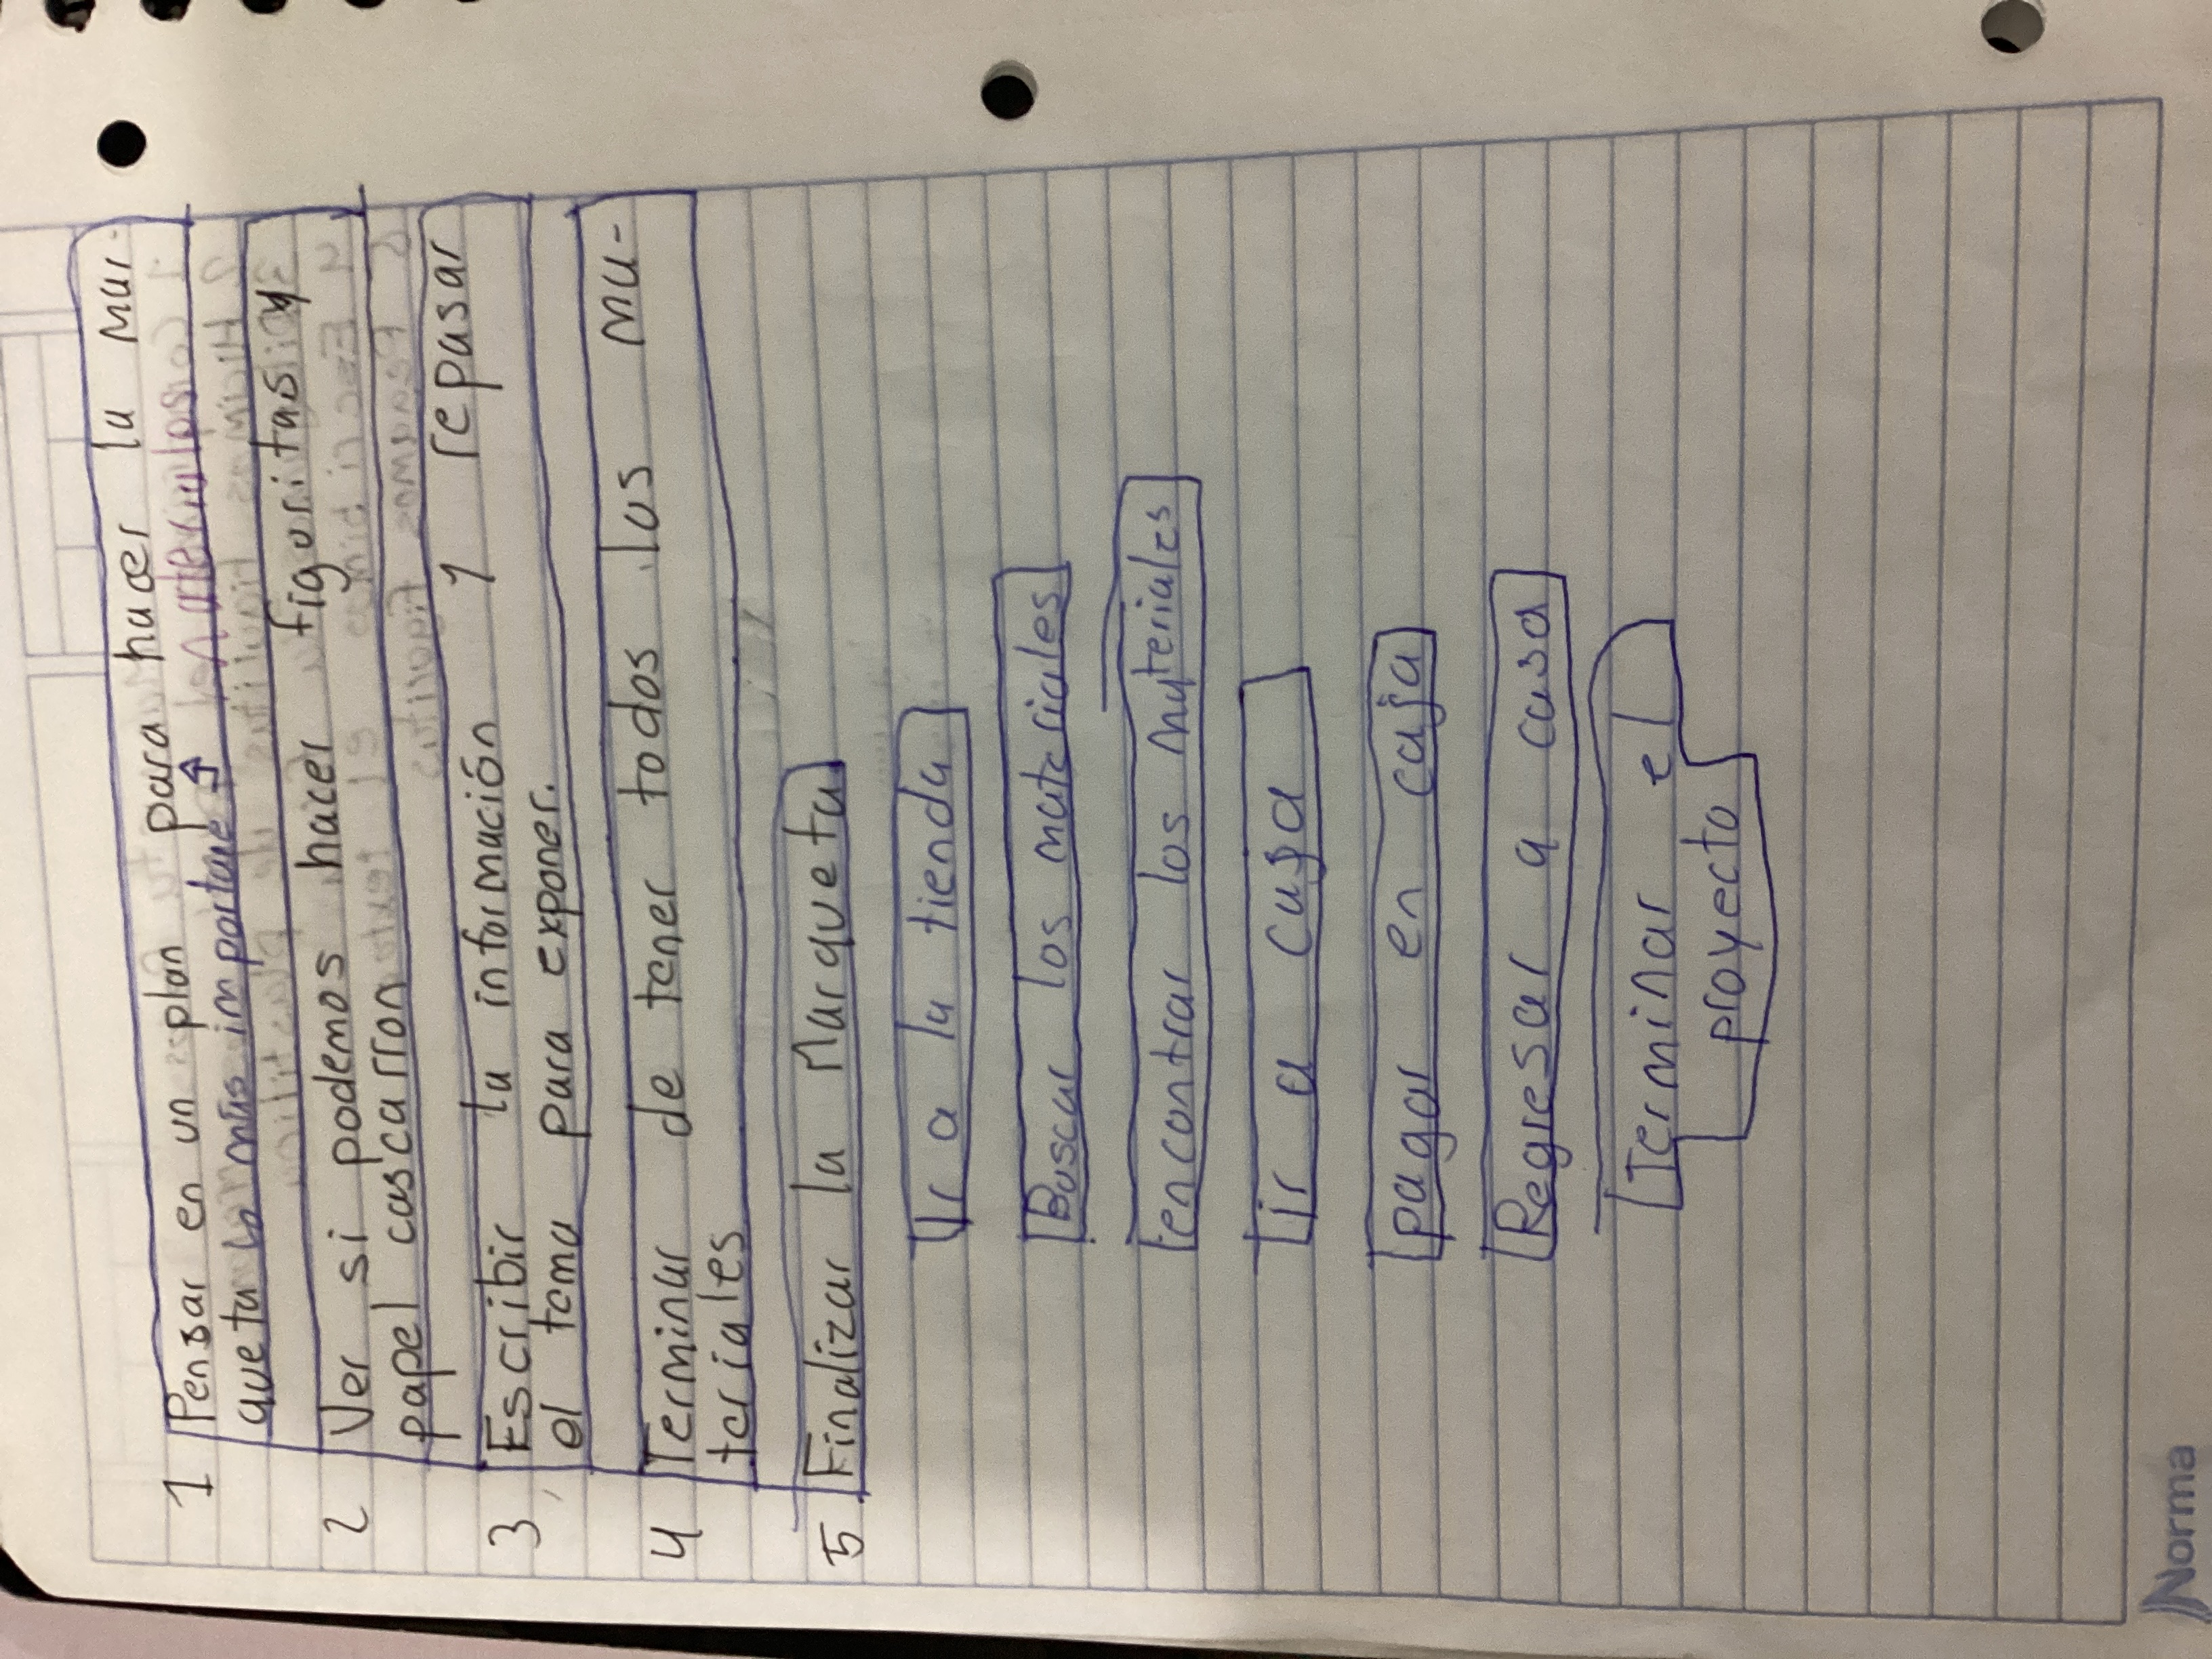 1 Pensar en un plan para hacer la mar-
queta lo más importante
2 Ver si podemos hacer figuritas y
papel cascarron
3 Escribir la información y repasar
el tema para exponer.
4 Terminar de tener todos los ma-
teriales
5 Finalizar la Marqueta
Ir a la tienda
Buscar los materiales
encontrar los materiales
ir a casa
pagar en caja
Regresar a casa
Terminar el
proyecto
Norma